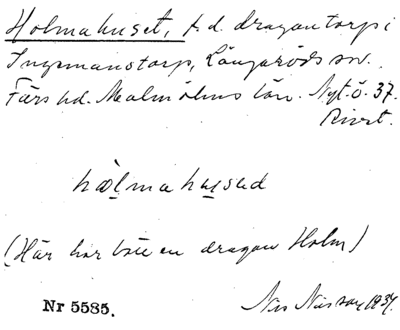 Holmahuset, f.d. dragontorp i
Ingemanstorp, Långaröds sn.
Färs hd. Malmöhus län. Nyt.ö. 37.
Rivet.
hòlmahused
(Här har bott en dragon Holm)
Nr 5585.
Nils Nilsson 1937.